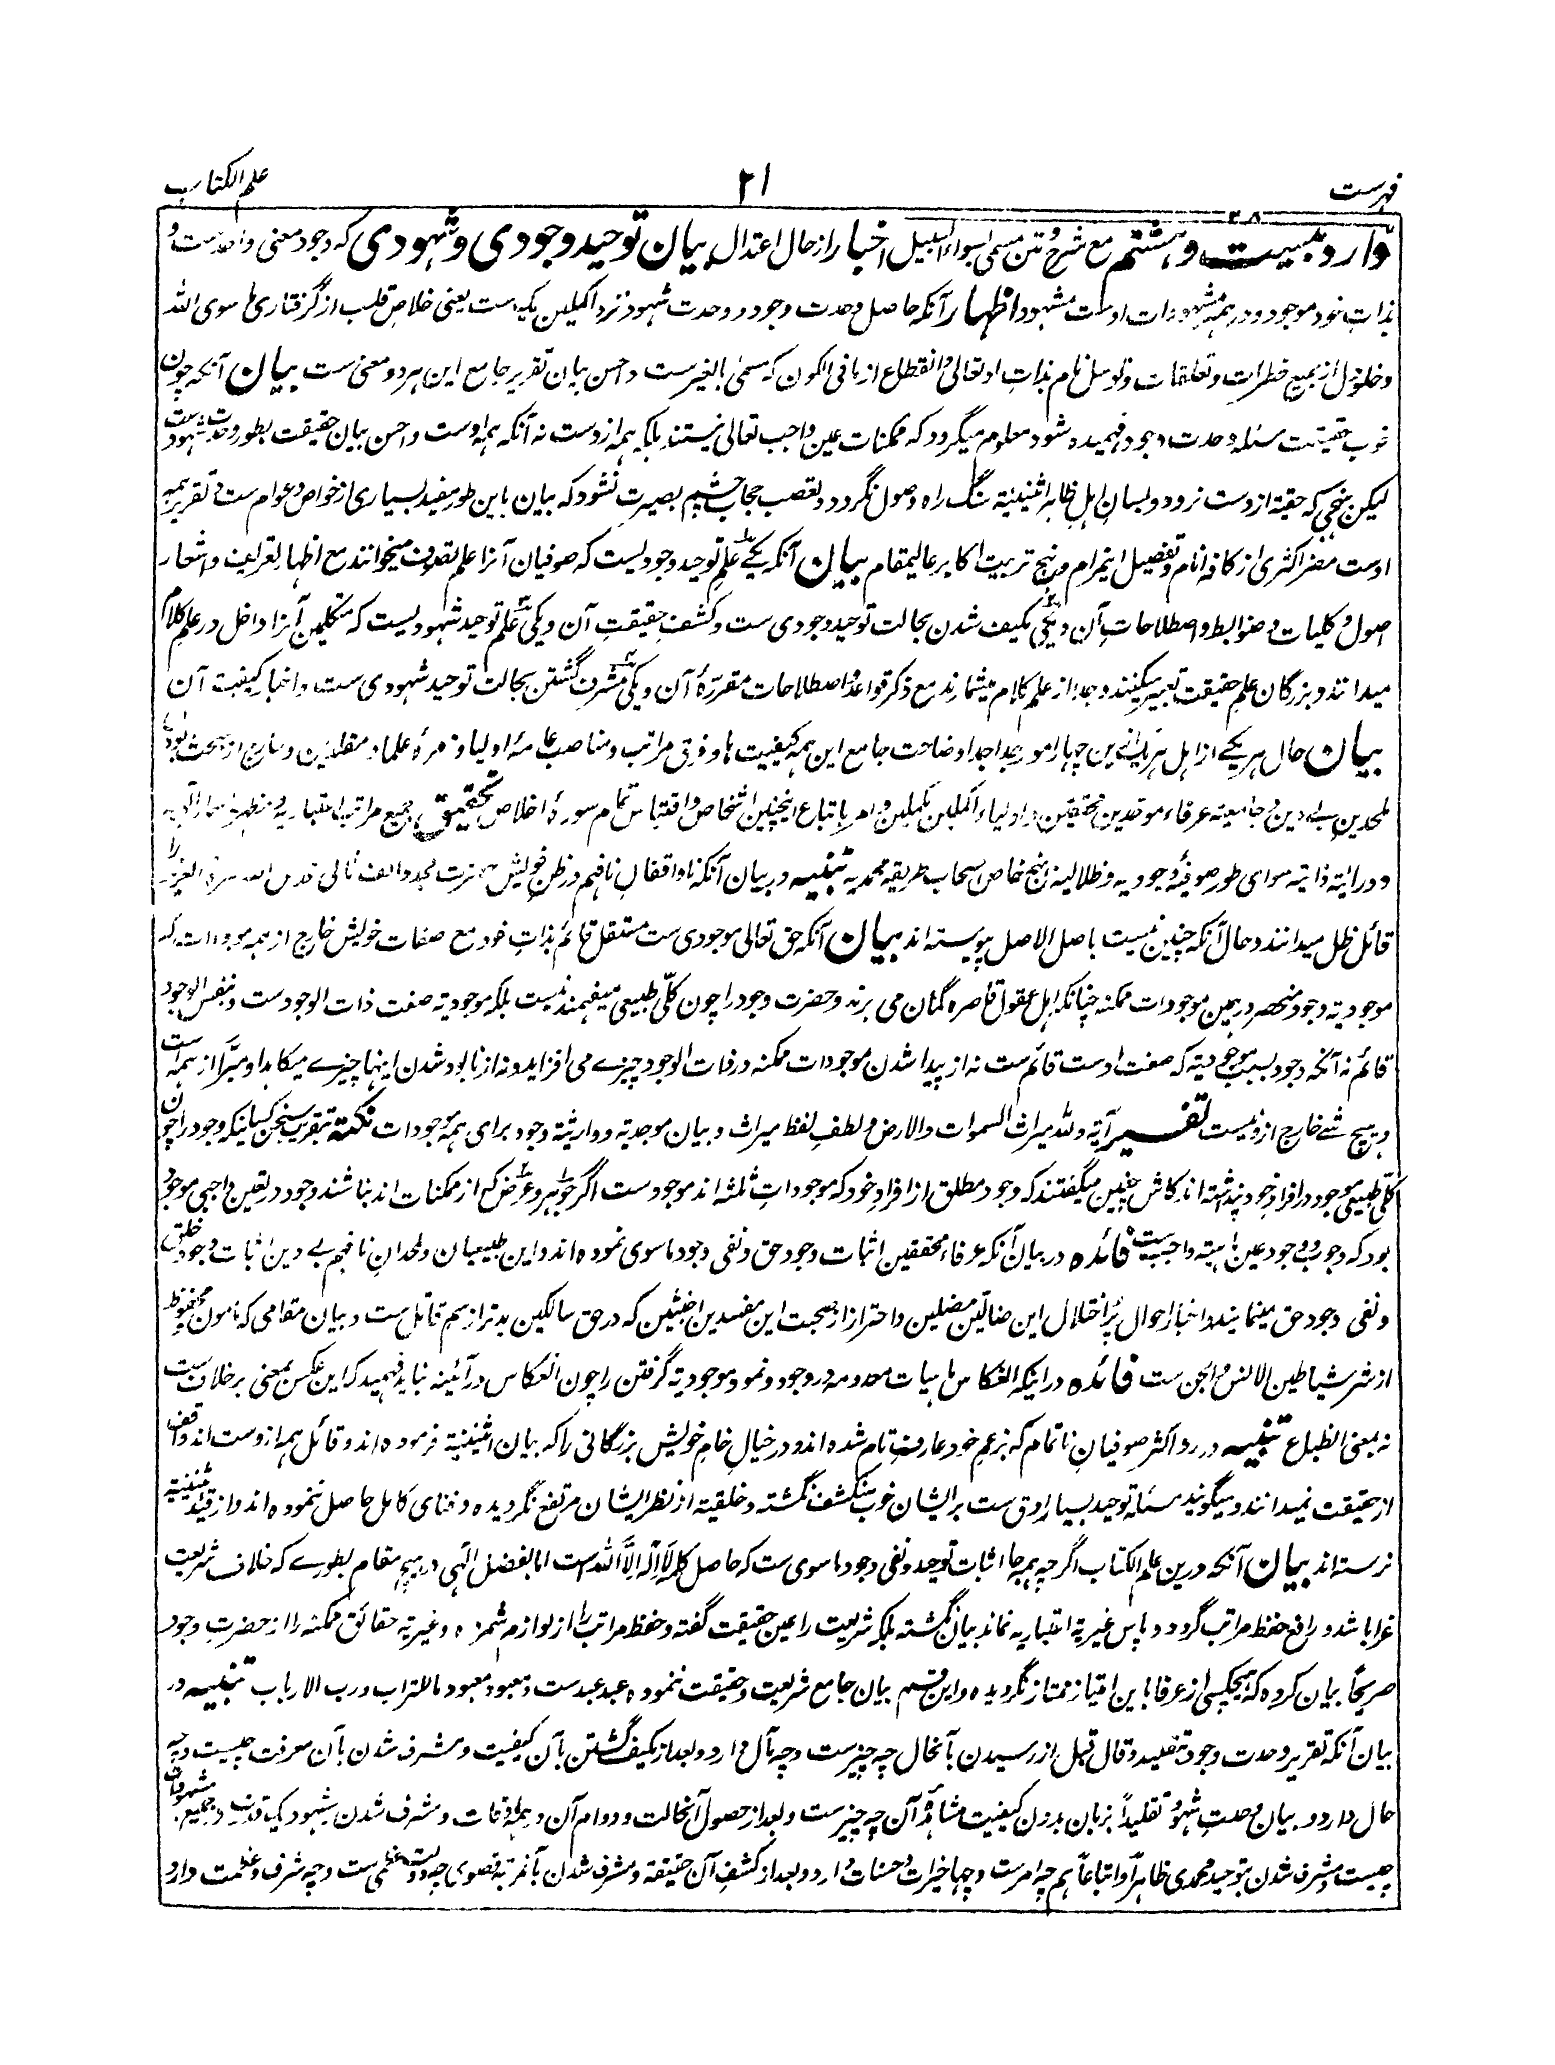 فهرست
۲۱
علم الکتاب
۲۸
وارد بیست و هشتم مع شرح و متن مسمی بسواء السبیل اخبار از حال اعتدال بیان توحید وجودی و شهودی که وجود معنی واحدست و
بذات خود موجود و در همه مشهودات اوست مشهود اظهار آنکه حاصل وحدت وجود و وحدت شهود نزد اکملین یکیست یعنی خلاص قلب از گرفتاری ما سوی الله
و خلو دل از جمیع خطرات و تعلقات و توسل تام بذات او تعالی و انقطاع از مافی الکون که مسمی بالغیرست و احسن بیان تقریر جامع این هر دو معنی ست بیان آنکه چون
خوب حقیقت مسئله وحدت وجود فهمیده شود معلوم میگردد که ممکنات عین واجب تعالی نیستند بلکه همه ازوست نه آنکه همه اوست و احسن بیان حقیقت بطور وحدت شهودست
لیکن بنهجی که حقیقة از دست نرود و بسان اهل ظاهر اثنینیة سنگ راه وصول نگردد و تعصب حجاب چشم بصیرت نشود که بیان باین طور مفید بسیاری از خواص و عوام ست و تقریر همه
اوست مضر اکثری از کافه انام و تفصیل اینمرام بر نهج تربیت اکابر عالیمقام بیان آنکه یکی علم توحید وجودیست که صوفیان آنرا علم تصوف میخوانند مع اظهار تعریف و اشعار
اصول و کلیات و ضوابط و اصطلاحات آن و یکی مکیف شدن بحالت توحید وجودی ست و کشف حقیقت آن و یکی علم توحید شهودیست که متکلمین آنرا داخل در علم کلام
میدانند و بزرگان علم حقیقت تعبیر میکنند و جدا از علم کلام میشمارند مع ذکر قواعد و اصطلاحات مقررهٔ آن و یکی مشرف گشتن بحالت توحید شهودی ست و اخبار کیفیت آن
بیان حال هر یکے از اهل این چهار امور جدا جدا و ضاحت جامع این همه کیفیت ها و فوق مراتب و مناصب عامهٔ اولیا و زمرهٔ علماء مقلدین و خارج از مبحث بودن
ملحدین بی دین و جامعیة عرفاء موحدین محققین و اولیاء اکملین مکملین و امر باتباع اینچنین اشخاص و اقتباس تمام سورهٔ اخلاص تحقیق جمیع مراتب اعتباریه و
و ورائیة ذاتیه سوای طور صوفیهٔ وجودیه و ظلالیه بنهج خاص اصحاب طریقه محمدیه تنبیه در بیان آنکه ناواقفان نافهم در ظن خویش حضرت مجدد الف ثانی قدس الله سره العزیز را
قائل ظل میدانند و حال آنکه چنین نیست باصل الاصل پیوسته اند بیان آنکه حق تعالی موجودی ست مستقل قائم بذات خود مع صفات خویش خارج از همه موجودات نه که
موجودیة وجود منحصر در همین موجودات ممکنه چنانکه اهل عقول قاصره گمان می برند و حضرت وجود را چون کلی طبیعی میفهمند نیست بلکه موجودیة صفت ذات الوجودست و بنفس الوجود
قائم نه آنکه وجود بسبب موجودیة که صفت اوست قائم ست نه از پیدا شدن موجودات ممکنه در ذات الوجود چیزے می افزاید و نه از نابود شدن اینها چیزے میکاهد او مبرا از همه است
و هیچ شے خارج ازو نیست تفسیر آیه و لله میراث السموات والارض و لطف لفظ میراث و بیان موجدیة و وارثیة وجود برای همه موجودات نکته بتقریب سخن کسانیکه وجود را چون
کلی طبیعی موجود در افراد خود پنداشته اند کاش چنین میگفتند که وجود مطلق از افراد خود که موجودات ثلثه اند موجودست اگر جوهر و عرض که از ممکنات اند نباشند وجود در تعین واجبی موجود
بود که وجوب وجود عین ماهیة واجب ست فائده در بیان آنکه عرفاء محققین اثبات وجود حق و نفی وجود ما سوی نموده اند و این طبیعیان و ملحدان نافهم بے دین اثبات وجود خلق
و نفی وجود حق مینمایند و اخبار احوال پر اختلال این ضالین مضلین و احتراز از صحبت این مفسدین اخبثین که در حق سالکین بدتر از سم قاتل ست و بیان مقامی که مامون محفوظ
از شر شیاطین الانس و الجن ست فائده در اینکه انعکاس ماهیات معدومه در وجود و نمود موجودیة گرفتن را چون انعکاس در آئینه نباید فهمید که این عکس بمعنی برخلاف ست
نه بمعنی انطباع تنبیه در رد اکثر صوفیان ناتمام که بزعم خود عارف تام شده اند و در خیال خام خویش بزرگانی را که بیان اثنینیة فرموده اند و قائل همه ازوست اند واقف
از حقیقت نمیدانند و میگویند مسئله توحید بسیار ادق ست بر ایشان خوب منکشف نگشته و خلقیة از نظر ایشان مرتفع نگردیده و فنای کامل حاصل ننموده اند و از قید اثنینیة
نرسته اند بیان آنکه درین علم الکتاب اگرچه همه جا اثبات توحید و نفی وجود ما سوی ست که حاصل کلمه لا اله الا الله است اما بفضل الهی در هیچ مقام بطورے که خلاف شریعت
غرا باشد و رافع حفظ مراتب گردد و پاس غیریة اعتباریه نماند بیان نگشته بلکه شریعت را عین حقیقت گفته و حفظ مراتب را از لوازم شمرده و غیریة حقائق ممکنه را از حضرت وجود
صریحاً بیان کرده که هیچکسی از عرفا باین امتیاز ممتاز نگردیده و این قسم بیان جامع شریعت و حقیقت ننموده عبد عبدست و معبود معبود ما للتراب و رب الارباب تنبیه در
بیان آنکه تقریر وحدت وجود بتقلید و قال قبل از رسیدن بآنحال چه چیزست و چه مآل دارد و بعد از مکیف گشتن بآن کیفیت و مشرف شدن بآن معرفت چیست و چه
حال دارد و بیان وحدت شهود تقلیداً بزبان بدون کیفیت مشاهدهٔ آن چه چیزست و بعد از حصول آنحالت و دوام آن در همه اوقات و مشرف شدن بشهود یک ذات در جمیع مشهودات
چیست و مشرف شدن بتوحید محمدی ظاهراً و اتباعاً هم چه امرست و چها خیرات و حسنات دارد و بعد از کشف آن حقیقة و مشرف شدن بآنمرتبه قصوی چه دولت عظمی ست و چه شرف و عظمت دارد